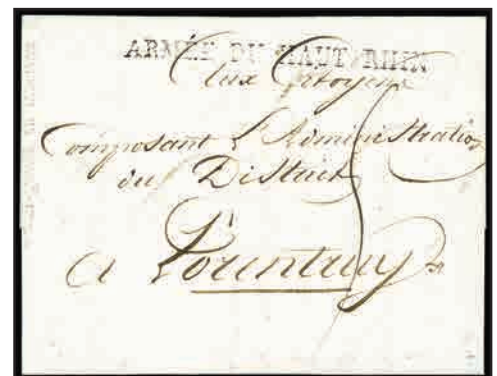 ARMÉE DU HAUT-RHIN
Aux Citoyens
Composant l'Administration
du District
a Porentruy